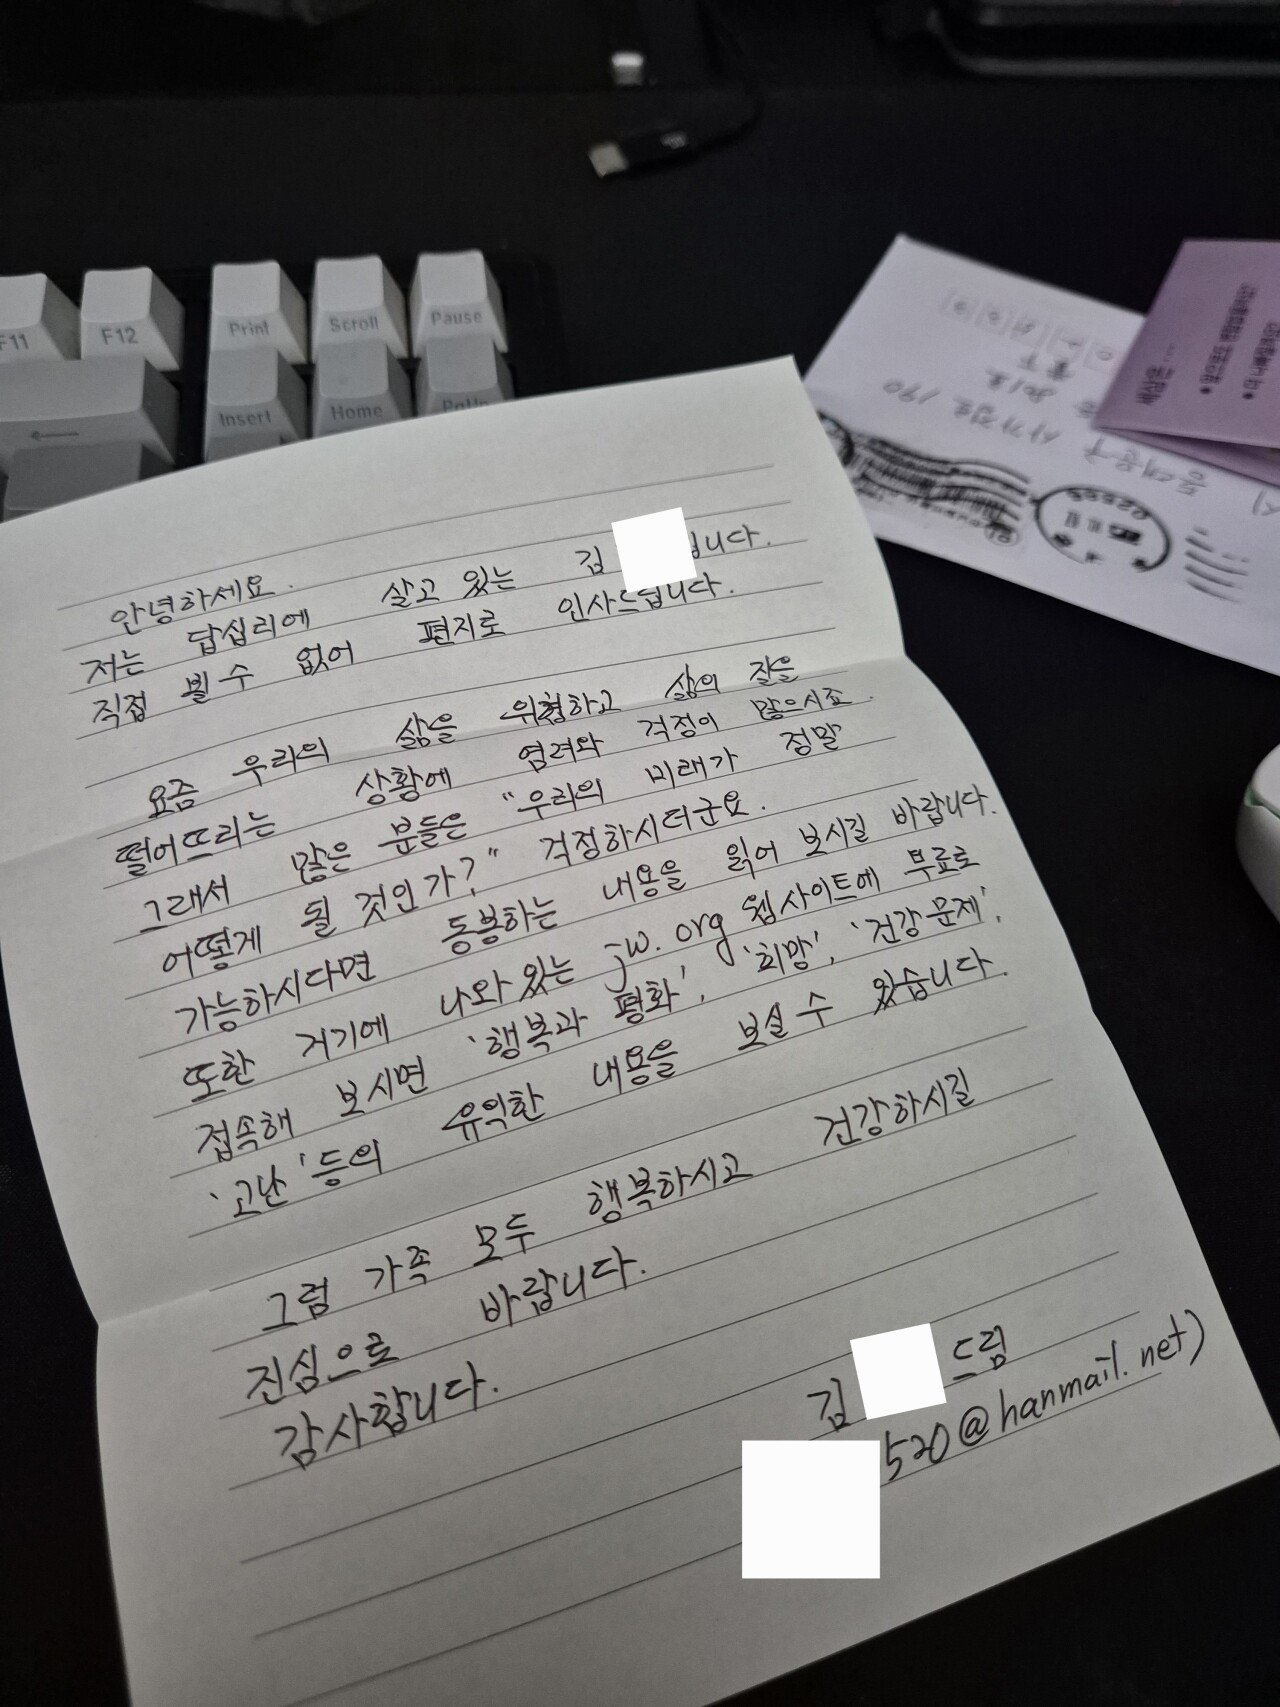 F11
F12
Print
Scroll
Pause
Insert
Home
PgUp
안녕하세요.
저는 답십리에 살고 있는 김 입니다.
직접 뵐 수 없어 편지로 인사드립니다.
요즘 우리의 삶을 위협하고 삶의 질을
떨어뜨리는 상황에 염려와 걱정이 많으시죠.
그래서 많은 분들은 "우리의 미래가 정말
어떻게 될 것인가?" 걱정하시더군요.
가능하시다면 동봉하는 내용을 읽어 보시길 바랍니다.
또한 거기에 나와있는 jw.org 웹사이트에 무료로
접속해 보시면 '행복과 평화', '희망', '건강 문제',
'고난' 등의 유익한 내용을 보실 수 있습니다.
그럼 가족 모두 행복하시고 건강하시길
진심으로 바랍니다.
감사합니다.
김 드림
520@hanmail.net)
동대문구 사가정로 190
세상은